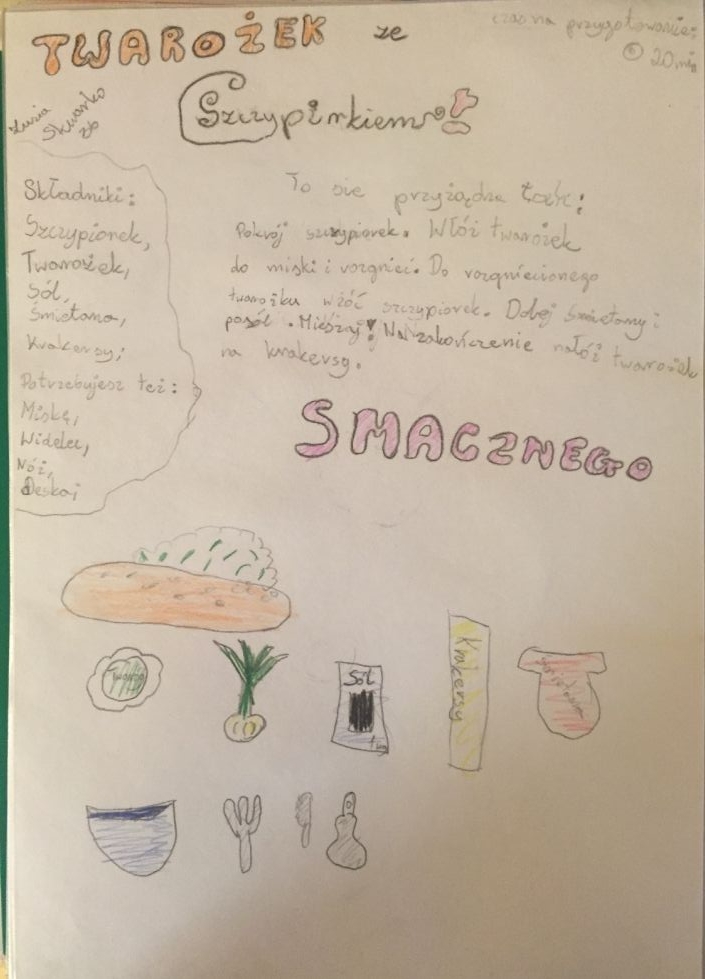 TWAROŻEK ze
Szczypirkiem!
czas na przygotowanie:
20 min
Zuzia
Składniki:
Szczypionek,
Twarożek,
Sól,
Śmietana,
Krakersy;
Potrzebujesz też:
Miskę,
Widelec,
Nóż,
Deska;
To się przyżądza tak:
Pokrój szczypiorek. Włóż twarożek
do miski i rozgnieć. Do rozgniecionego
twarożku wżóć szczypiorek. Dodej śmietany i
posól. Mieszaj! Na zakończenie nałóż twarożek
na krakersy.
SMACZNEGO
Twaróg
Sól
1 kg
Krakersy
śmietana